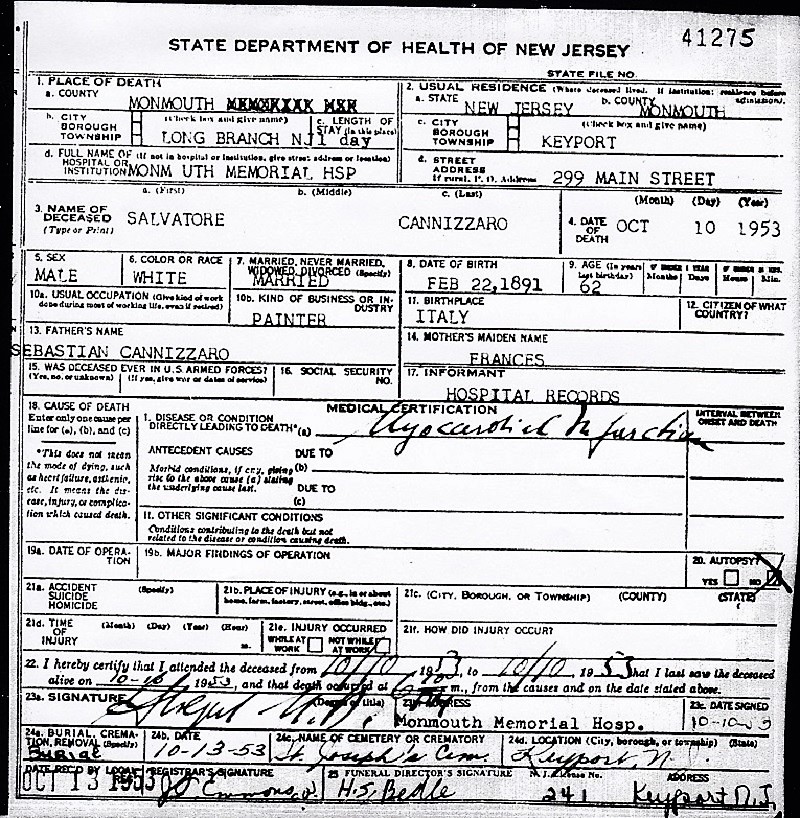 41275
STATE DEPARTMENT OF HEALTH OF NEW JERSEY
STATE FILE NO.
1. PLACE OF DEATH
a. COUNTY
MONMOUTH
2. USUAL RESIDENCE (Where deceased lived. If institution: residence before admission).
a. STATE NEW JERSEY b. COUNTY MONMOUTH
b. CITY BOROUGH TOWNSHIP (Check box and give name) LONG BRANCH NJ
c. LENGTH OF STAY (in this place) 1 day
c. CITY BOROUGH TOWNSHIP (Check box and give name) KEYPORT
d. FULL NAME OF (If not in hospital or institution, give street address or location) HOSPITAL OR INSTITUTION MONM UTH MEMORIAL HSP
d. STREET ADDRESS If rural, P. O. Address 299 MAIN STREET
3. NAME OF DECEASED (Type or Print)
a. (First) b. (Middle) c. (Last)
SALVATORE CANNIZZARO
4. DATE OF DEATH (Month) (Day) (Year)
OCT 10 1953
5. SEX MALE
6. COLOR OR RACE WHITE
7. MARRIED, NEVER MARRIED, WIDOWED, DIVORCED (Specify) MARRIED
8. DATE OF BIRTH FEB 22,1891
9. AGE (In years last birthday) 62
IF UNDER 1 YEAR Months Days
Hours Min.
10a. USUAL OCCUPATION (Give kind of work done during most of working life, even if retired)
10b. KIND OF BUSINESS OR INDUSTRY PAINTER
11. BIRTHPLACE ITALY
12. CITIZEN OF WHAT COUNTRY?
13. FATHER'S NAME
SEBASTIAN CANNIZZARO
14. MOTHER'S MAIDEN NAME
FRANCES
15. WAS DECEASED EVER IN U.S. ARMED FORCES? (Yes, no, or unknown) (If yes, give war or dates of service)
16. SOCIAL SECURITY NO.
17. INFORMANT
HOSPITAL RECORDS
18. CAUSE OF DEATH
Enter only one cause per line for (a), (b), and (c)
MEDICAL CERTIFICATION
INTERVAL BETWEEN ONSET AND DEATH
1. DISEASE OR CONDITION DIRECTLY LEADING TO DEATH*(a) Myocardial Infarction
*This does not mean the mode of dying, such as heart failure, asthenia, etc. It means the disease, injury, or complication which caused death.
ANTECEDENT CAUSES DUE TO
Morbid conditions, if any, giving (b)
rise to the above cause (a) stating
the underlying cause last. DUE TO
(c)
11. OTHER SIGNIFICANT CONDITIONS
Conditions contributing to the death but not
related to the disease or condition causing death.
19a. DATE OF OPERATION
19b. MAJOR FINDINGS OF OPERATION
20. AUTOPSY?
YES NO
21a. ACCIDENT SUICIDE HOMICIDE (Specify)
21b. PLACE OF INJURY (e.g., in or about home, farm, factory, street, office bldg., etc.)
21c. (CITY, BOROUGH, OR TOWNSHIP) (COUNTY) (STATE)
21d. TIME OF INJURY (Month) (Day) (Year) (Hour) m.
21e. INJURY OCCURRED
WHILE AT WORK NOT WHILE AT WORK
21f. HOW DID INJURY OCCUR?
22. I hereby certify that I attended the deceased from 10/10, 1953, to 10/10, 1953 that I last saw the deceased
alive on 10-10, 1953, and that death occurred at m., from the causes and on the date stated above.
23a. SIGNATURE (Degree or title)
23b. ADDRESS
Monmouth Memorial Hosp.
23c. DATE SIGNED
10-10-53
24a. BURIAL, CREMATION, REMOVAL (Specify)
Burial
24b. DATE
10-13-53
24c. NAME OF CEMETERY OR CREMATORY
St. Joseph's Cem.
24d. LOCATION (City, borough, or township) (State)
Keyport, N.J.
DATE REC'D BY LOCAL REG.
OCT 13 1953
REGISTRAR'S SIGNATURE
25 FUNERAL DIRECTOR'S SIGNATURE
H.S. Bedle
N.J. License No.
241
ADDRESS
Keyport N.J.